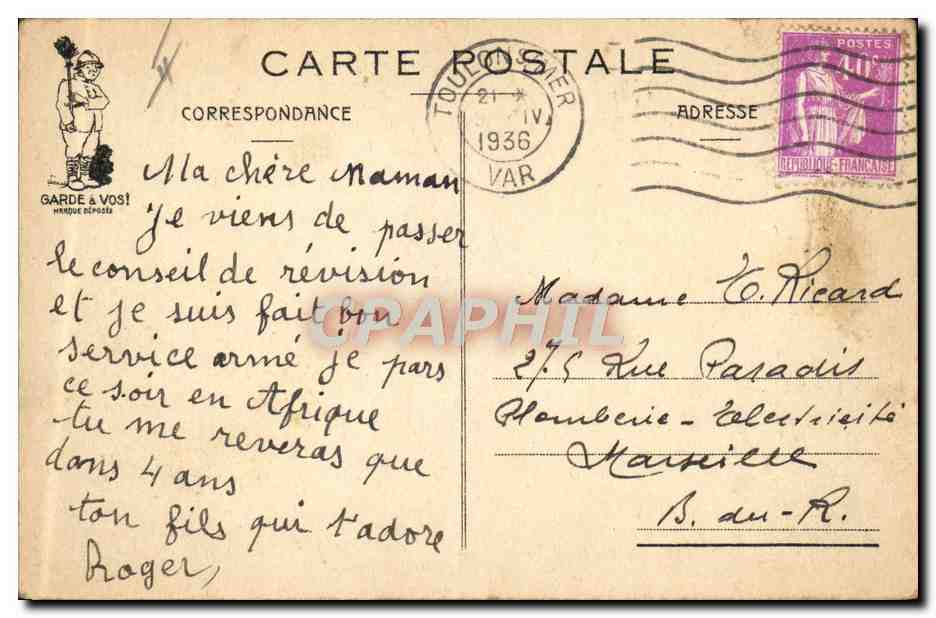 CARTE POSTALE
CORRESPONDANCE
ADRESSE
GARDE à VOS!
MARQUE DÉPOSÉE
TOULON S MER
21
IV
1936
VAR
POSTES
40c
REPUBLIQUE-FRANÇAISE
Ma chère Maman
Je viens de passer
le conseil de révision
et je suis fait bon
service armé je pars
ce soir en Afrique
tu me reveras que
dans 4 ans
ton fils qui t'adore
Roger,
Madame E. Ricard
275 Rue Paradis
Plomberie - Electricité
Marseille
B. du-R.
CPAPHIL